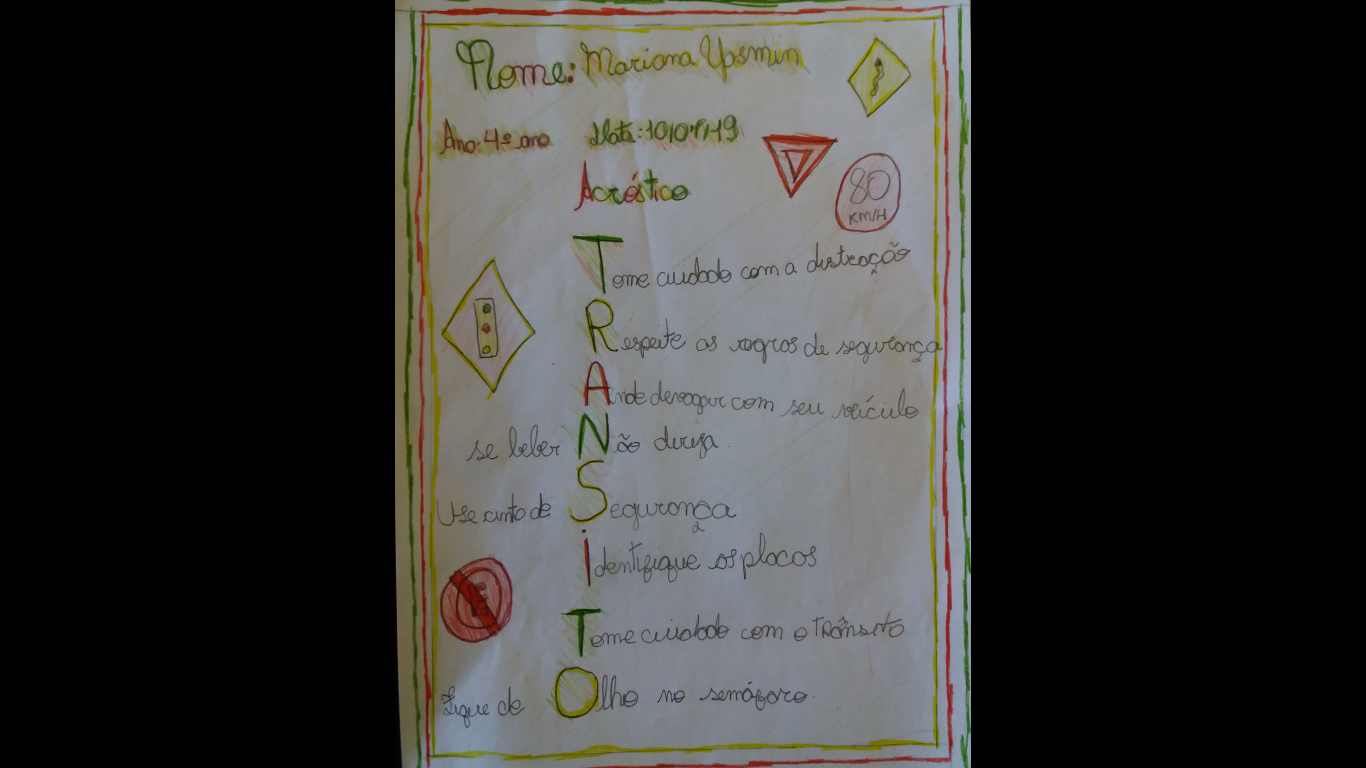 Nome: Mariana Yasmin
Ano: 4º ano Data: 10/09/19
Acróstico
80
KM/H
Tome cuidado com a distração
Respeite as regras de segurança
Ande devagar com seu veículo
se beber Não dirija.
Use cinto de Segurança
identifique as placas
Tome cuidado com o trânsito
Fique de Olho no semáforo.
E